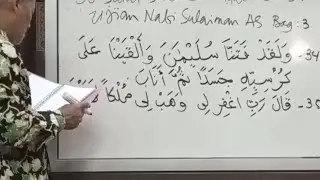 Ujian Nabi Sulaiman AS Bag : 3
34- وَلَقَدْ فَتَنَّا سُلَيْمٰنَ وَأَلْقَيْنَا عَلَى
كُرْسِيِّهِ جَسَدًا ثُمَّ أَنَابَ
35- قَالَ رَبِّ اغْفِرْ لِي وَهَبْ لِي مُلْكًا